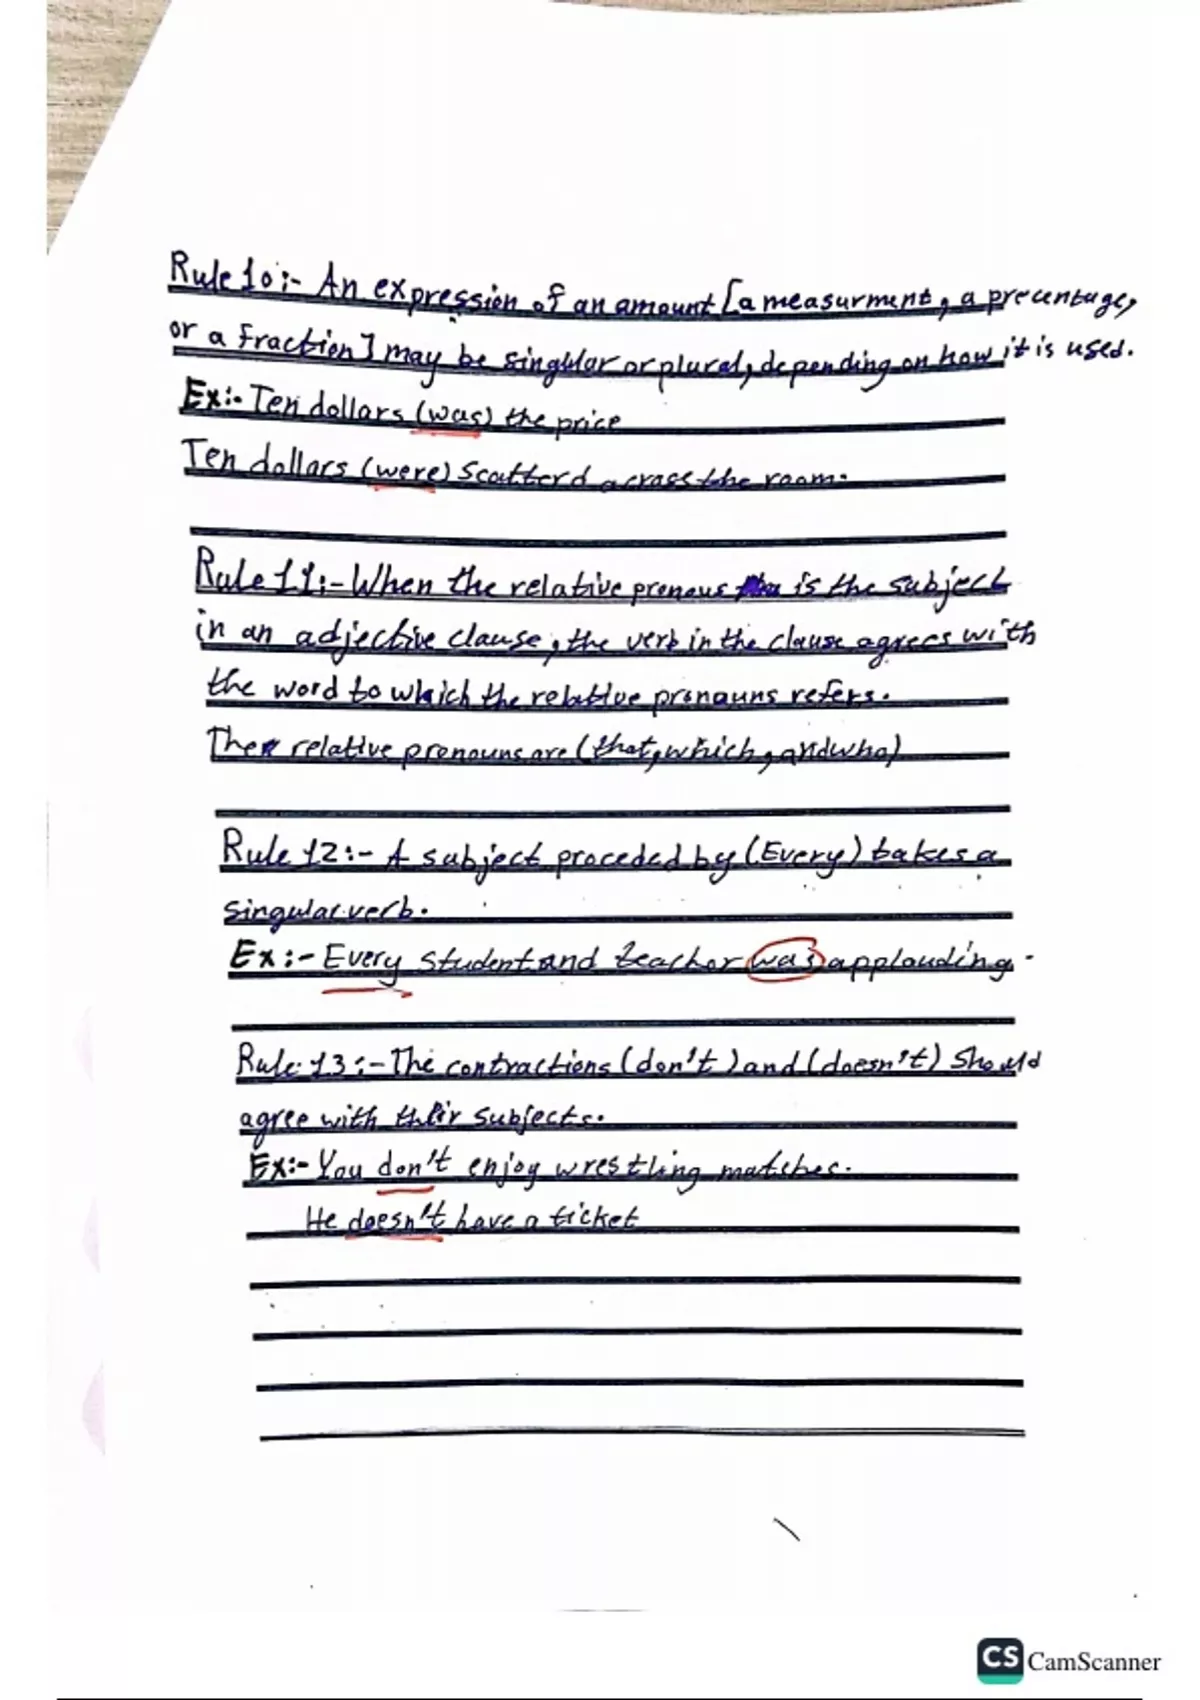 Rule 10:- An expression of an amount [a measurment, a precentage,
or a fraction] may be singular or plural, depending on how it is used.
Ex:- Ten dollars (was) the price
Ten dollars (were) Scatterd across the room.
Rule 11:- When the relative pronous is the subject
in an adjective clause, the verb in the clause agrees with
the word to which the relative pronouns refers.
The relative pronouns are (that, which, and who)
Rule 12:- A subject proceded by (Every) takes a
singular verb.
Ex:- Every student and teacher was applauding.
Rule 13:- The contractions (don't) and (doesn't) should
agree with their subjects.
Ex:- You don't enjoy wrestling matches.
He doesn't have a ticket
CS CamScanner